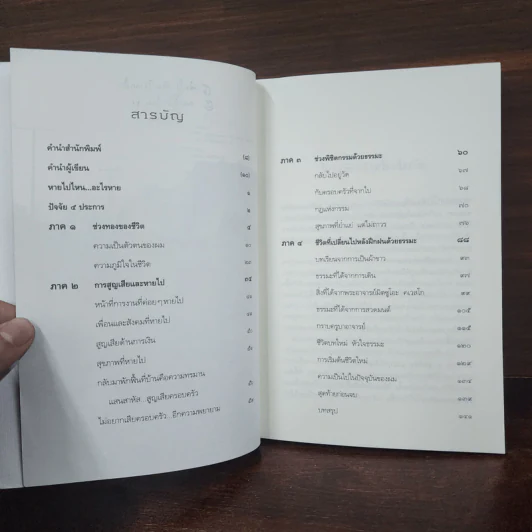 สารบัญ
คำนำสำนักพิมพ์ (๘)
คำนำผู้เขียน (๑๐)
หายไปไหน...อะไรหาย ๑
ปัจจัย ๔ ประการ ๒
ภาค ๑ ช่วงทองของชีวิต ๔
ความเป็นตัวตนของผม
ความภูมิใจในชีวิต
ภาค ๒ การสูญเสียและหายไป ๓๕
หน้าที่การงานที่ค่อยๆหายไป
เพื่อนและสังคมที่หายไป
สูญเสียด้านการเงิน
สุขภาพที่หายไป
กลับมาพักฟื้นที่บ้านคือความทรมาน
แสนสาหัส...สูญเสียครอบครัว
ไม่อยากเสียครอบครัว...อีกความพยายาม
ภาค ๓ ช่วงพิชิตกรรมด้วยธรรมะ ๖๐
กลับไปอยู่วัด ๖๗
กับครอบครัวที่จากไป ๖๘
กฎแห่งกรรม ๗๐
สุขภาพที่ย่ำแย่ แต่ไม่ถาวร ๗๖
ภาค ๔ ชีวิตที่เปลี่ยนไปหลังฝึกฝนด้วยธรรมะ ๘๘
บทเรียนจากการเป็นผักขาว ๙๐
ธรรมะที่ได้จากการเดิน
สิ่งที่ได้จากพระอาจารย์มิตซูโอะ คเวสโก
ธรรมะที่ได้จากการสวดมนต์
กราบครูบาอาจารย์ ๑๑๕
ชีวิตบทใหม่ หัวใจธรรมะ ๑๒๐
การเริ่มต้นชีวิตใหม่
ความเป็นไปในปัจจุบันของผม
สุดท้ายก่อนจบ ๑๓๙
บทสรุป